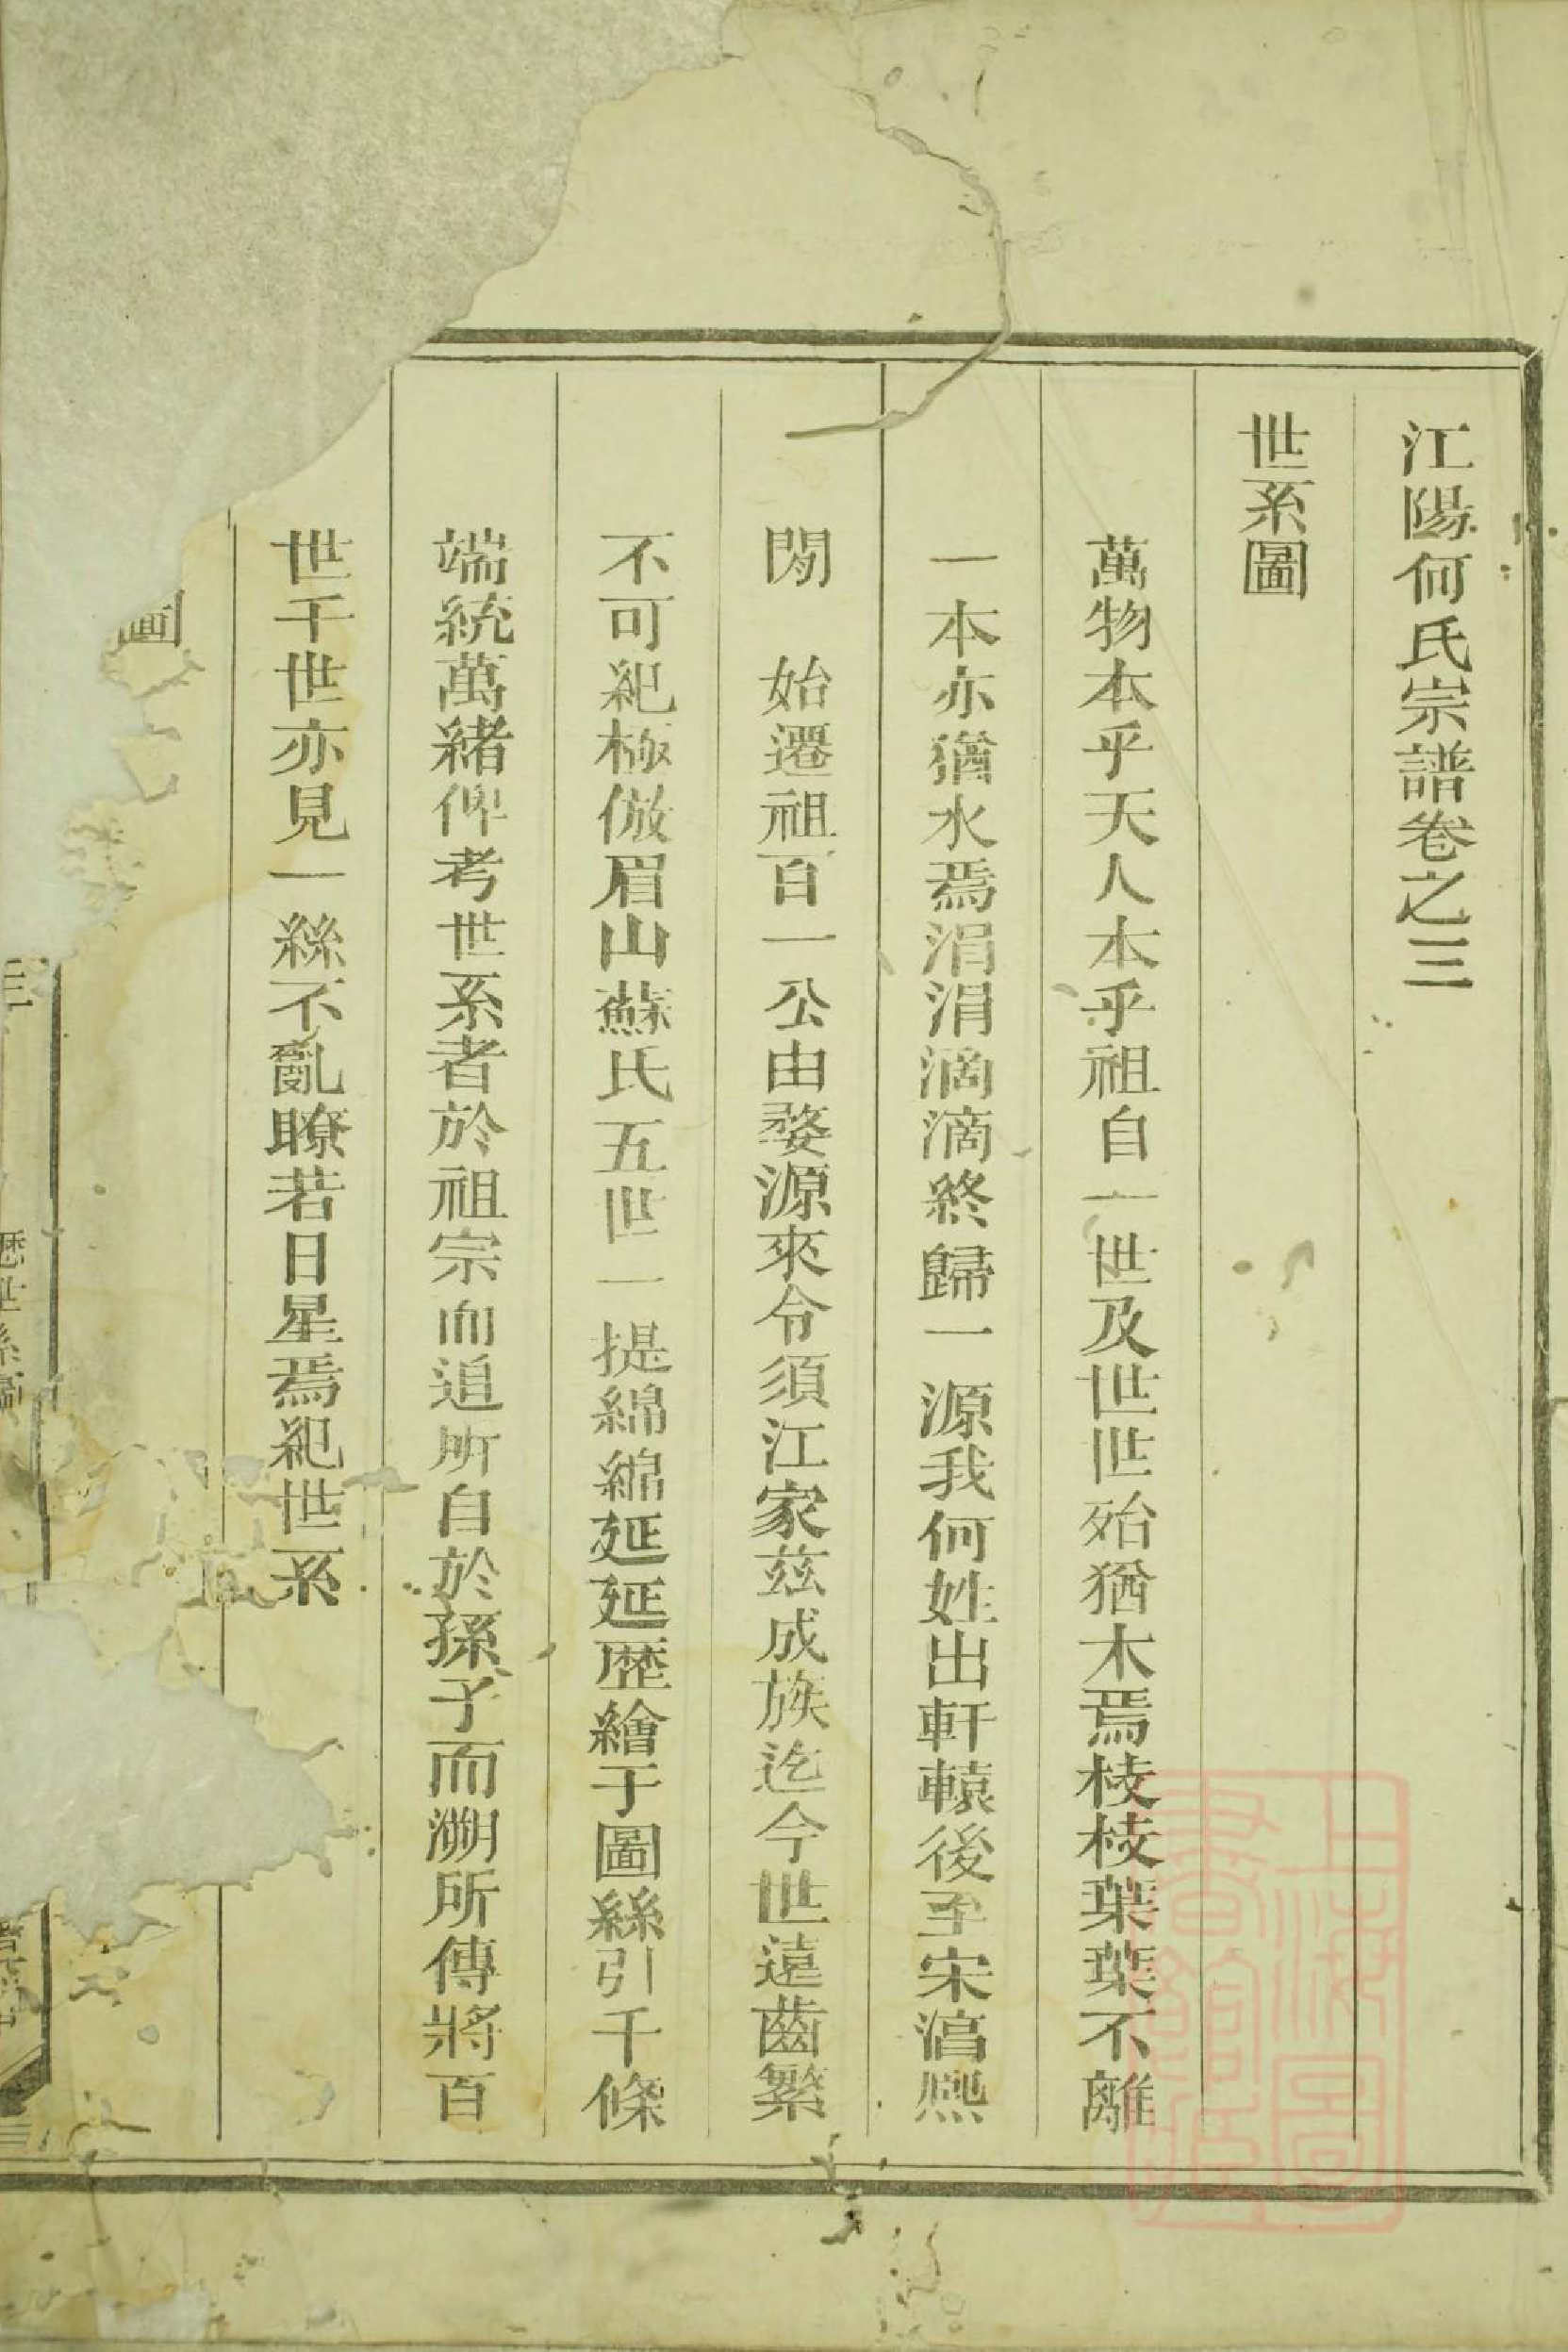 江陽何氏宗譜卷之三
世系圖
萬物本乎天人本乎祖自一世及世世殆猶木焉枝枝葉葉不離
一本亦猶水焉涓涓滴滴終歸一源我何姓出軒轅後至宋淳熙
閒　始遷祖百一公由婺源來令須江家茲成族迄今世遠齒繁
不可紀極倣眉山蘇氏五世一提綿綿延延歷繪于圖絲引千條
端統萬緒俾考世系者於祖宗而追所自於孫子而溯所傳將百
世千世亦見一絲不亂瞭若日星焉紀世系
圖
歷世系圖
上海圖書館藏